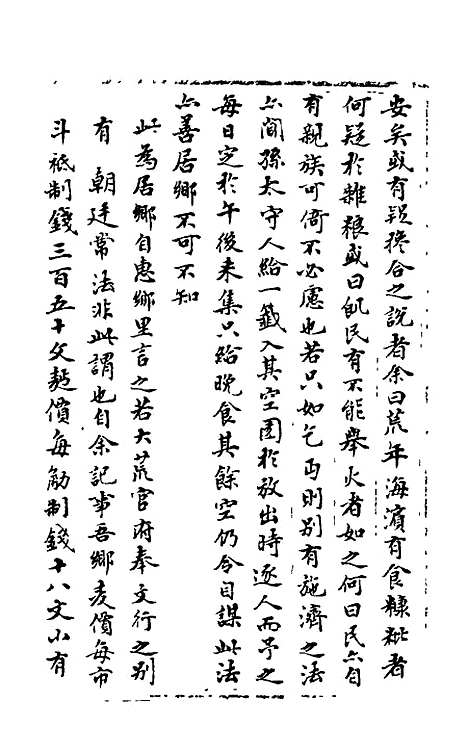 安矣或有疑攙合之說者余曰荒年海濱有食糠粃者
何疑於雜糧或曰飢民有不能舉火者如之何曰民亦自
有親族可倚不必慮也若只如乞丐則别有施濟之法
亦簡孫太守人給一籤入其空園於放出時逐人而予之
每日定於午後来集只給晚食其餘空仍令自謀此法
亦善居鄉不可不知
此為居鄉自惠鄉里言之若大荒官府奉文行之别
有 朝廷常法非此謂也自余記事吾鄉麦價每市
斗祗制錢三百五十文麵價每觔制錢十八文小有